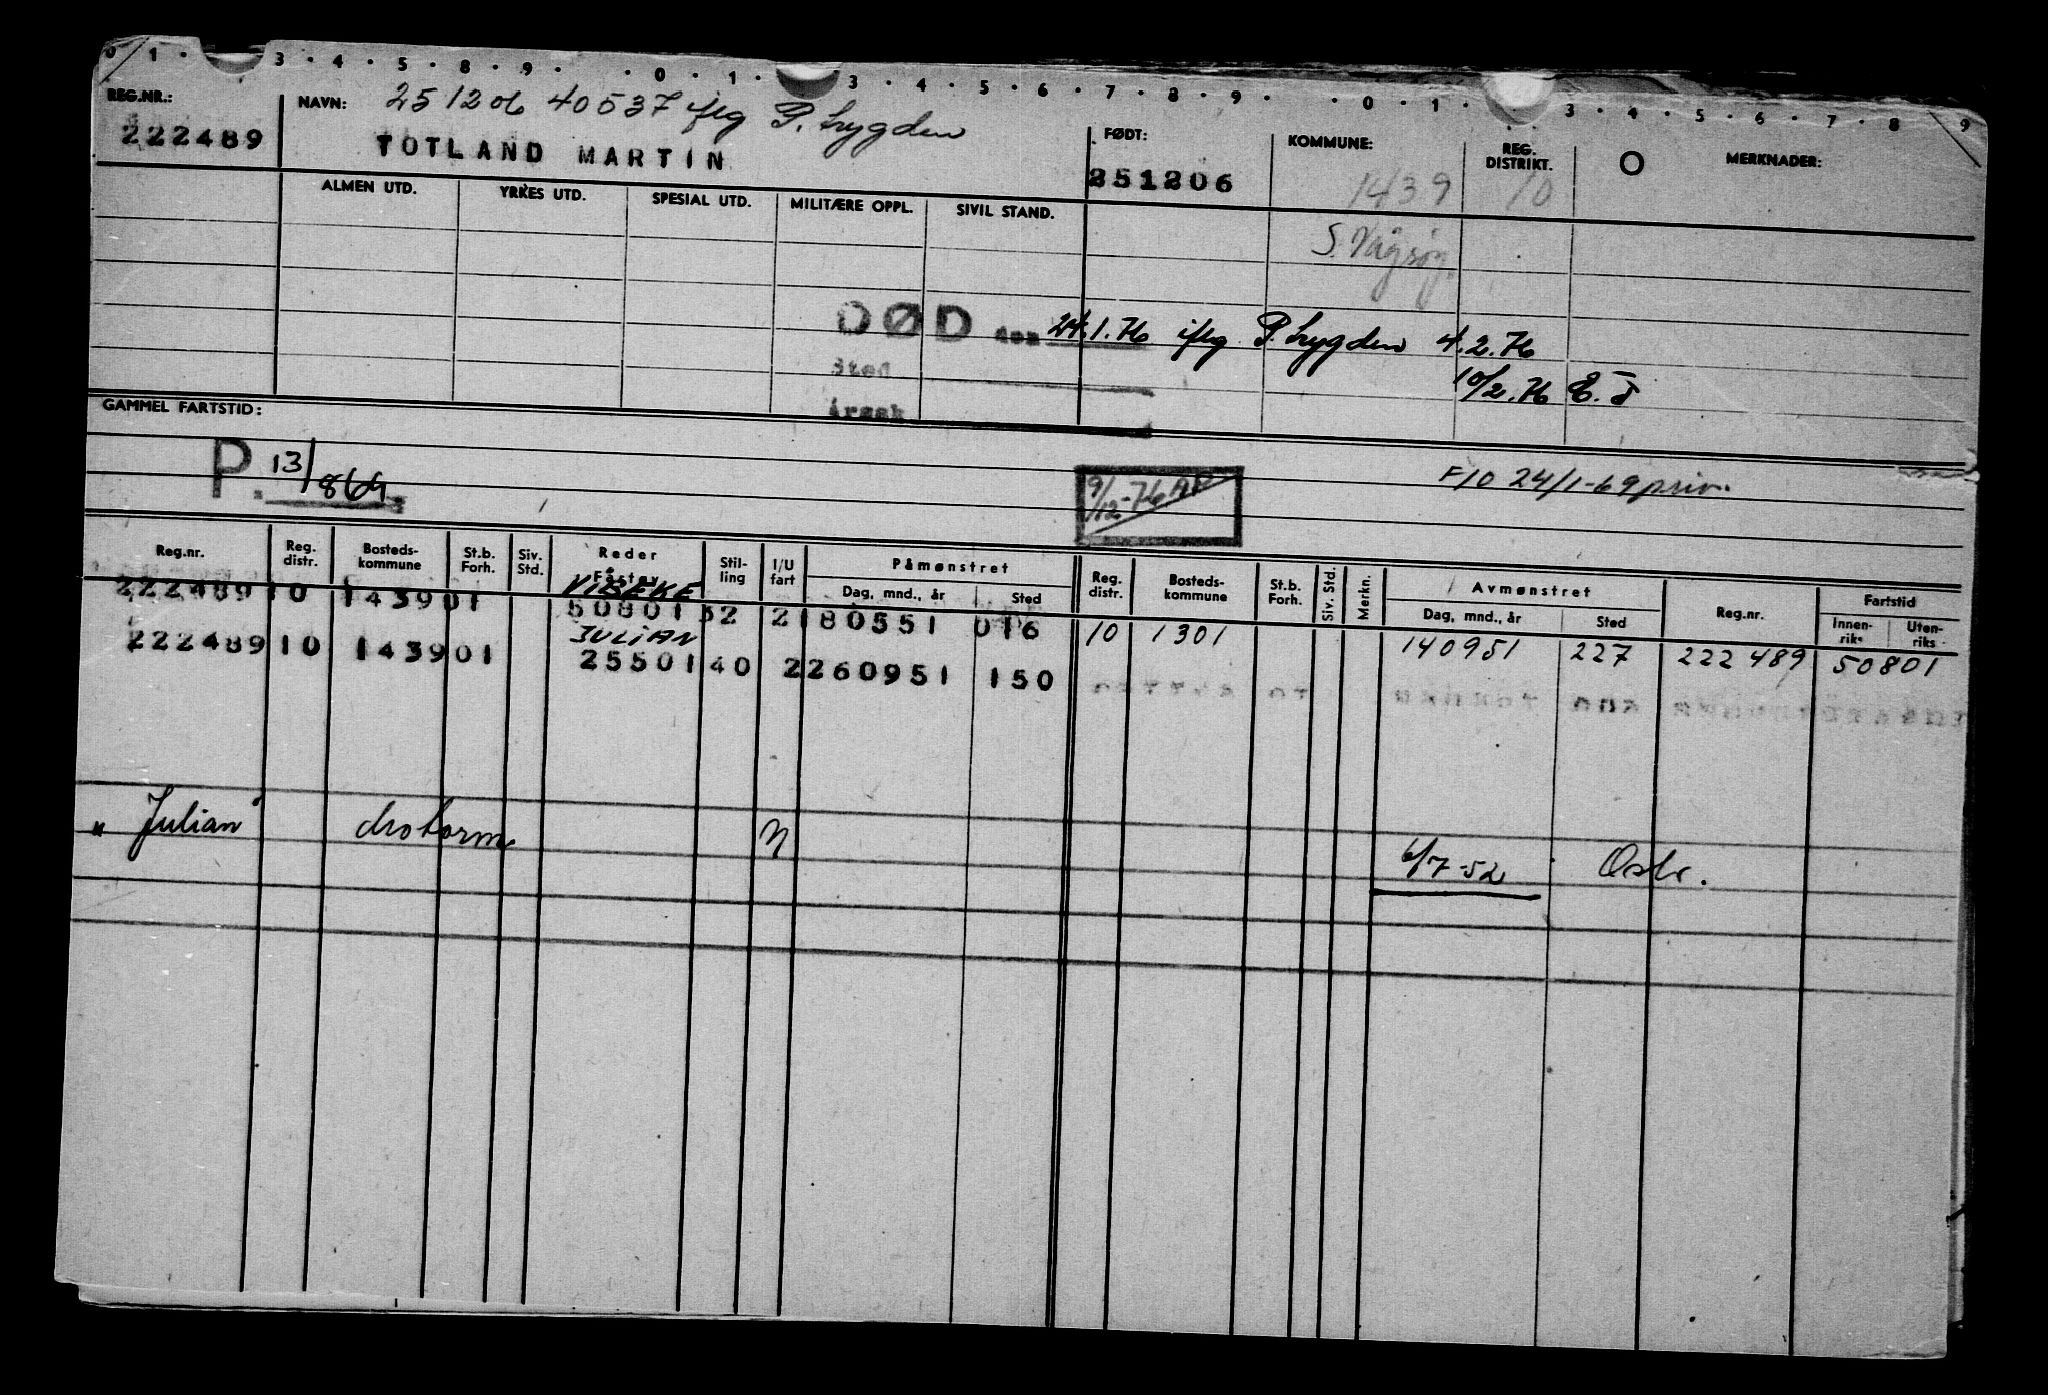 0 1 · 3 · 4 · 5 · 8 · 9 · · 0 · 1 · 3 · 4 · 5 · 6 · 7 · 8 · 9 · · 0 · 1 · 3 · 4 · 5 · 6 · 7 · 8 9
REG.NR.: NAVN: 251206 40537 iflg P. trygden FØDT: KOMMUNE: REG. DISTRIKT. O MERKNADER:
222489 TOTLAND MARTIN 251206 1439 10
ALMEN UTD. YRKES UTD. SPESIAL UTD. MILITÆRE OPPL. SIVIL STAND.
S. Vågsøy.
DØD den 24.1.76 iflg P. trygden 4.2.76
Sted 10/2.76
Årsak
GAMMEL FARTSTID:
P. 13/864
9/12-76 F10 24/1-69 priv.
Reg.nr. Reg. distr. Bosteds-kommune St.b. Forh. Siv. Std. Reder Fartøy Stil-ling I/U fart Påmønstret Dag, mnd., år Sted Reg. distr. Bosteds-kommune St.b. Forh. Siv. Std. Merkn. Avmønstret Dag, mnd., år Sted Reg.nr. Fartstid Innen-riks Uten-riks
VIBEKE
222489 10 1439 01 50801 32 2 180551 016 10 1301 140951 227 222489 50801
JULIAN
222489 10 1439 01 25501 40 2 260951 150
"Julian" N 6/7-52 Oslo.